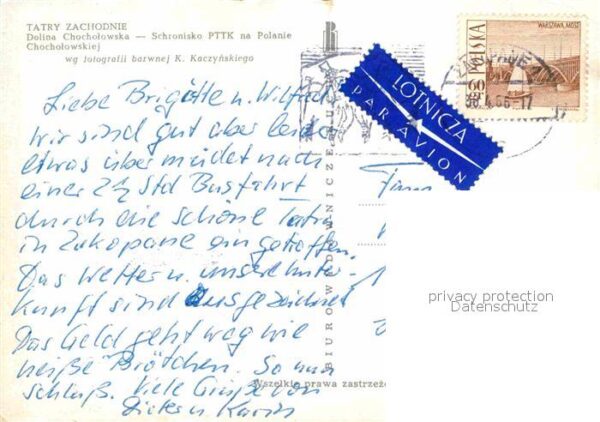 TATRY ZACHODNIE
Dolina Chochołowska — Schronisko PTTK na Polanie
Chochołowskiej
wg fotografii barwnej K. Kaczyńskiego
Liebe Brigitte u. Wilfried
wir sind gut aber leider
etwas übermüdet nach
einer 2½ Std Busfahrt
durch die schöne Tatra
in Zakopane eingetroffen.
Das Wetter u. unsere Unter-
kunft sind ausgezeichnet
Das Geld geht weg wie
heiße Brötchen. So nun
schluß. Viele Grüße von
Dieter u. Karin
BIURO WYDAWNICZE RUCH
Wszelkie prawa zastrzeżo
LOTNICZA
PAR AVION
WARSZAWA, MOST
POLSKA
60
66-17
privacy protection
Datenschutz